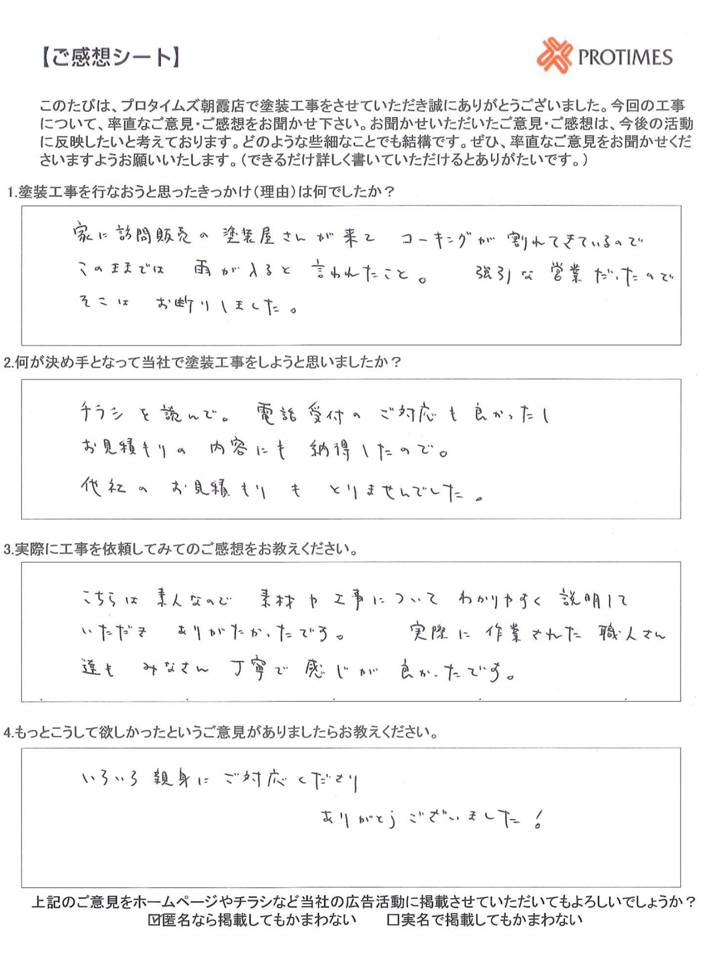 【ご感想シート】
PROTIMES
このたびは、プロタイムズ朝霞店で塗装工事をさせていただき誠にありがとうございました。今回の工事
について、率直なご意見・ご感想をお聞かせ下さい。お聞かせいただいたご意見・ご感想は、今後の活動
に反映したいと考えております。どのような些細なことでも結構です。ぜひ、率直なご意見をお聞かせくだ
さいますようお願いいたします。(できるだけ詳しく書いていただけるとありがたいです。)
1.塗装工事を行なおうと思ったきっかけ(理由)は何でしたか?
家に訪問販売の塗装屋さんが来て コーキングが割れてきているので
このままでは 雨が入ると言われたこと。 強引な営業だったので
そこは お断りしました。
2.何が決め手となって当社で塗装工事をしようと思いましたか?
チラシを読んで。電話受付のご対応も良かったし
お見積もりの内容にも納得したので。
他社のお見積もりもとりませんでした。
3.実際に工事を依頼してみてのご感想をお教えください。
こちらは素人なので 素材や工事についてわかりやすく説明して
いただき ありがたかったです。 実際に作業された職人さん
達も みなさん丁寧で感じが良かったです。
4.もっとこうして欲しかったというご意見がありましたらお教えください。
いろいろ親身にご対応くださり
ありがとうございました!
上記のご意見をホームページやチラシなど当社の広告活動に掲載させていただいてもよろしいでしょうか?
☑匿名なら掲載してもかまわない □実名で掲載してもかまわない